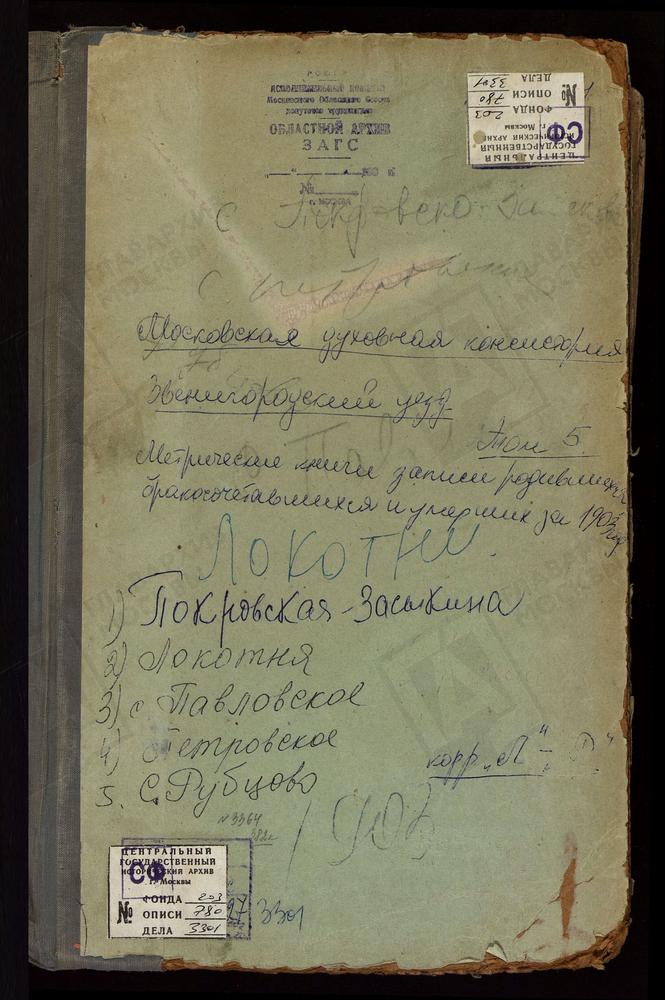 ИСПОЛНИТЕЛЬНЫЙ КОМИТЕТ
Московского Областного Совета
депутатов трудящихся
ОБЛАСТНОЙ АРХИВ
ЗАГС
№
г. МОСКВА
ЦЕНТРАЛЬНЫЙ
ГОСУДАРСТВЕННЫЙ
ИСТОРИЧЕСКИЙ АРХИВ
г. Москвы
СФ
ФОНДА 203
№ ОПИСИ 780
ДЕЛА 3301
с Покровско-
с Петровское
Московская духовная консистория
Звенигородский уезд
Том 5.
Метрические книги записи родившихся
бракосочетавшихся и умерших за 1903 год
Локотни.
1) Покровская-Засыкина
2) Локотня
3) с Павловское
4) Петровское
5. С. Рубцово
корр. "Л" - "Р"
№ 3364
382л
1903
ЦЕНТРАЛЬНЫЙ
ГОСУДАРСТВЕННЫЙ
ИСТОРИЧЕСКИЙ АРХИВ
г. Москвы
СФ
ФОНДА 203
№ ОПИСИ 780
ДЕЛА 3301
3301
ГЛАВАРХИВ
МОСКВЫ